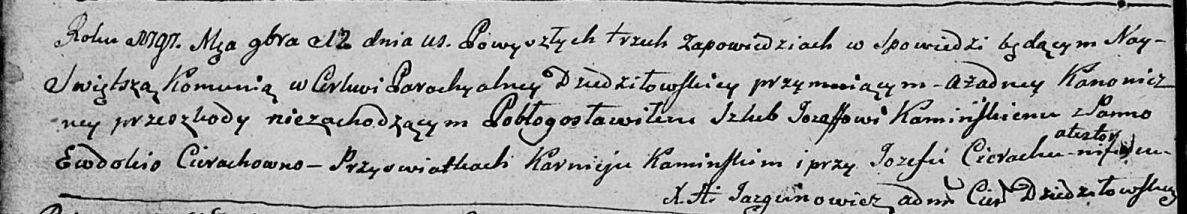 Roku 1797. Mca 9bra 12 dnia us. Powyszłych trzech Zapowiedziach w Spowiedzi będącym Nay-
Swiętszą Komunią w Cerkwi Parochyalney Dziedziłowskiey przymuiącym - a żadney Kanonicz
ney przeszkody niezachodzącym Pobłogosławiłem Szlub Jozeffowi Kamińskiemu z Panno
Ewdokio Cierachowno - Przy swiatkach Karnieju Kaminskim i przy Jozefu Cierachu
X. Jazgunowicz adm Cer Dziedziłowskiey